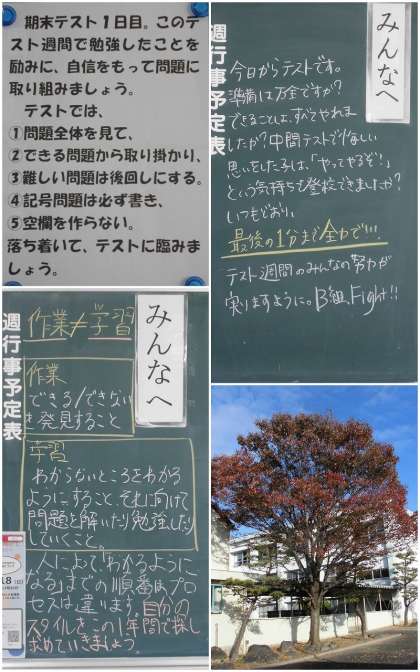 期末テスト１日目。このテ
スト週間で勉強したことを
励みに、自信をもって問題に
取り組みましょう。
テストでは、
①問題全体を見て、
②できる問題から取り掛かり、
③難しい問題は後回しにする。
④記号問題は必ず書き、
⑤空欄を作らない。
落ち着いて、テストに臨みま
しょう。
みんなへ
週行事予定表
今日からテストです。
準備は万全ですか？
できることは、すべてやれま
したか？中間テストで悔しい
思いをした子は、「やってやるぞ！」
という気持ちで登校できましたか？
いつもどおり、
最後の1分まで全力で!!!
テスト週間のみんなの努力が
実りますように。B組、Fight!!
みんなへ
週行事予定表
作業≠学習
作業
できる/できない
を発見すること
学習
わからないところをわかる
ようにすること。それに向けて
問題を解いたり勉強したり
していくこと。
人によって「わかるように
なる」までの順番やプロ
セスは違います。自分の
スタイルをこの1年間で探し
求めていきましょう。